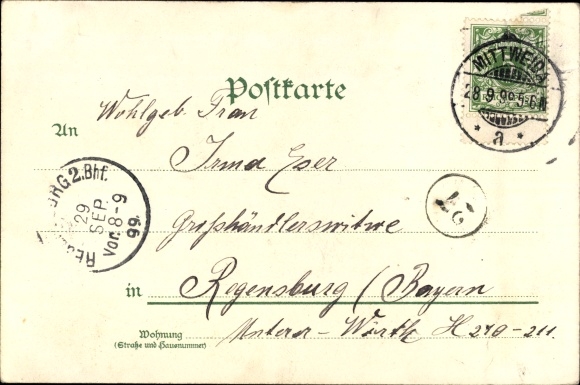 MITTWEIDA
28.9.99 5-6N
* a *
Postkarte
Wohlgeb. Frau
An
Irma Eser
REGENSBURG 2.Bhf.
29
SEP.
Vor. 8-9
99.
Großhändlerswitwe
in Regensburg / Bayern
Wohnung
(Straße und Hausnummer)
Unterer-Wörth H 210-211.